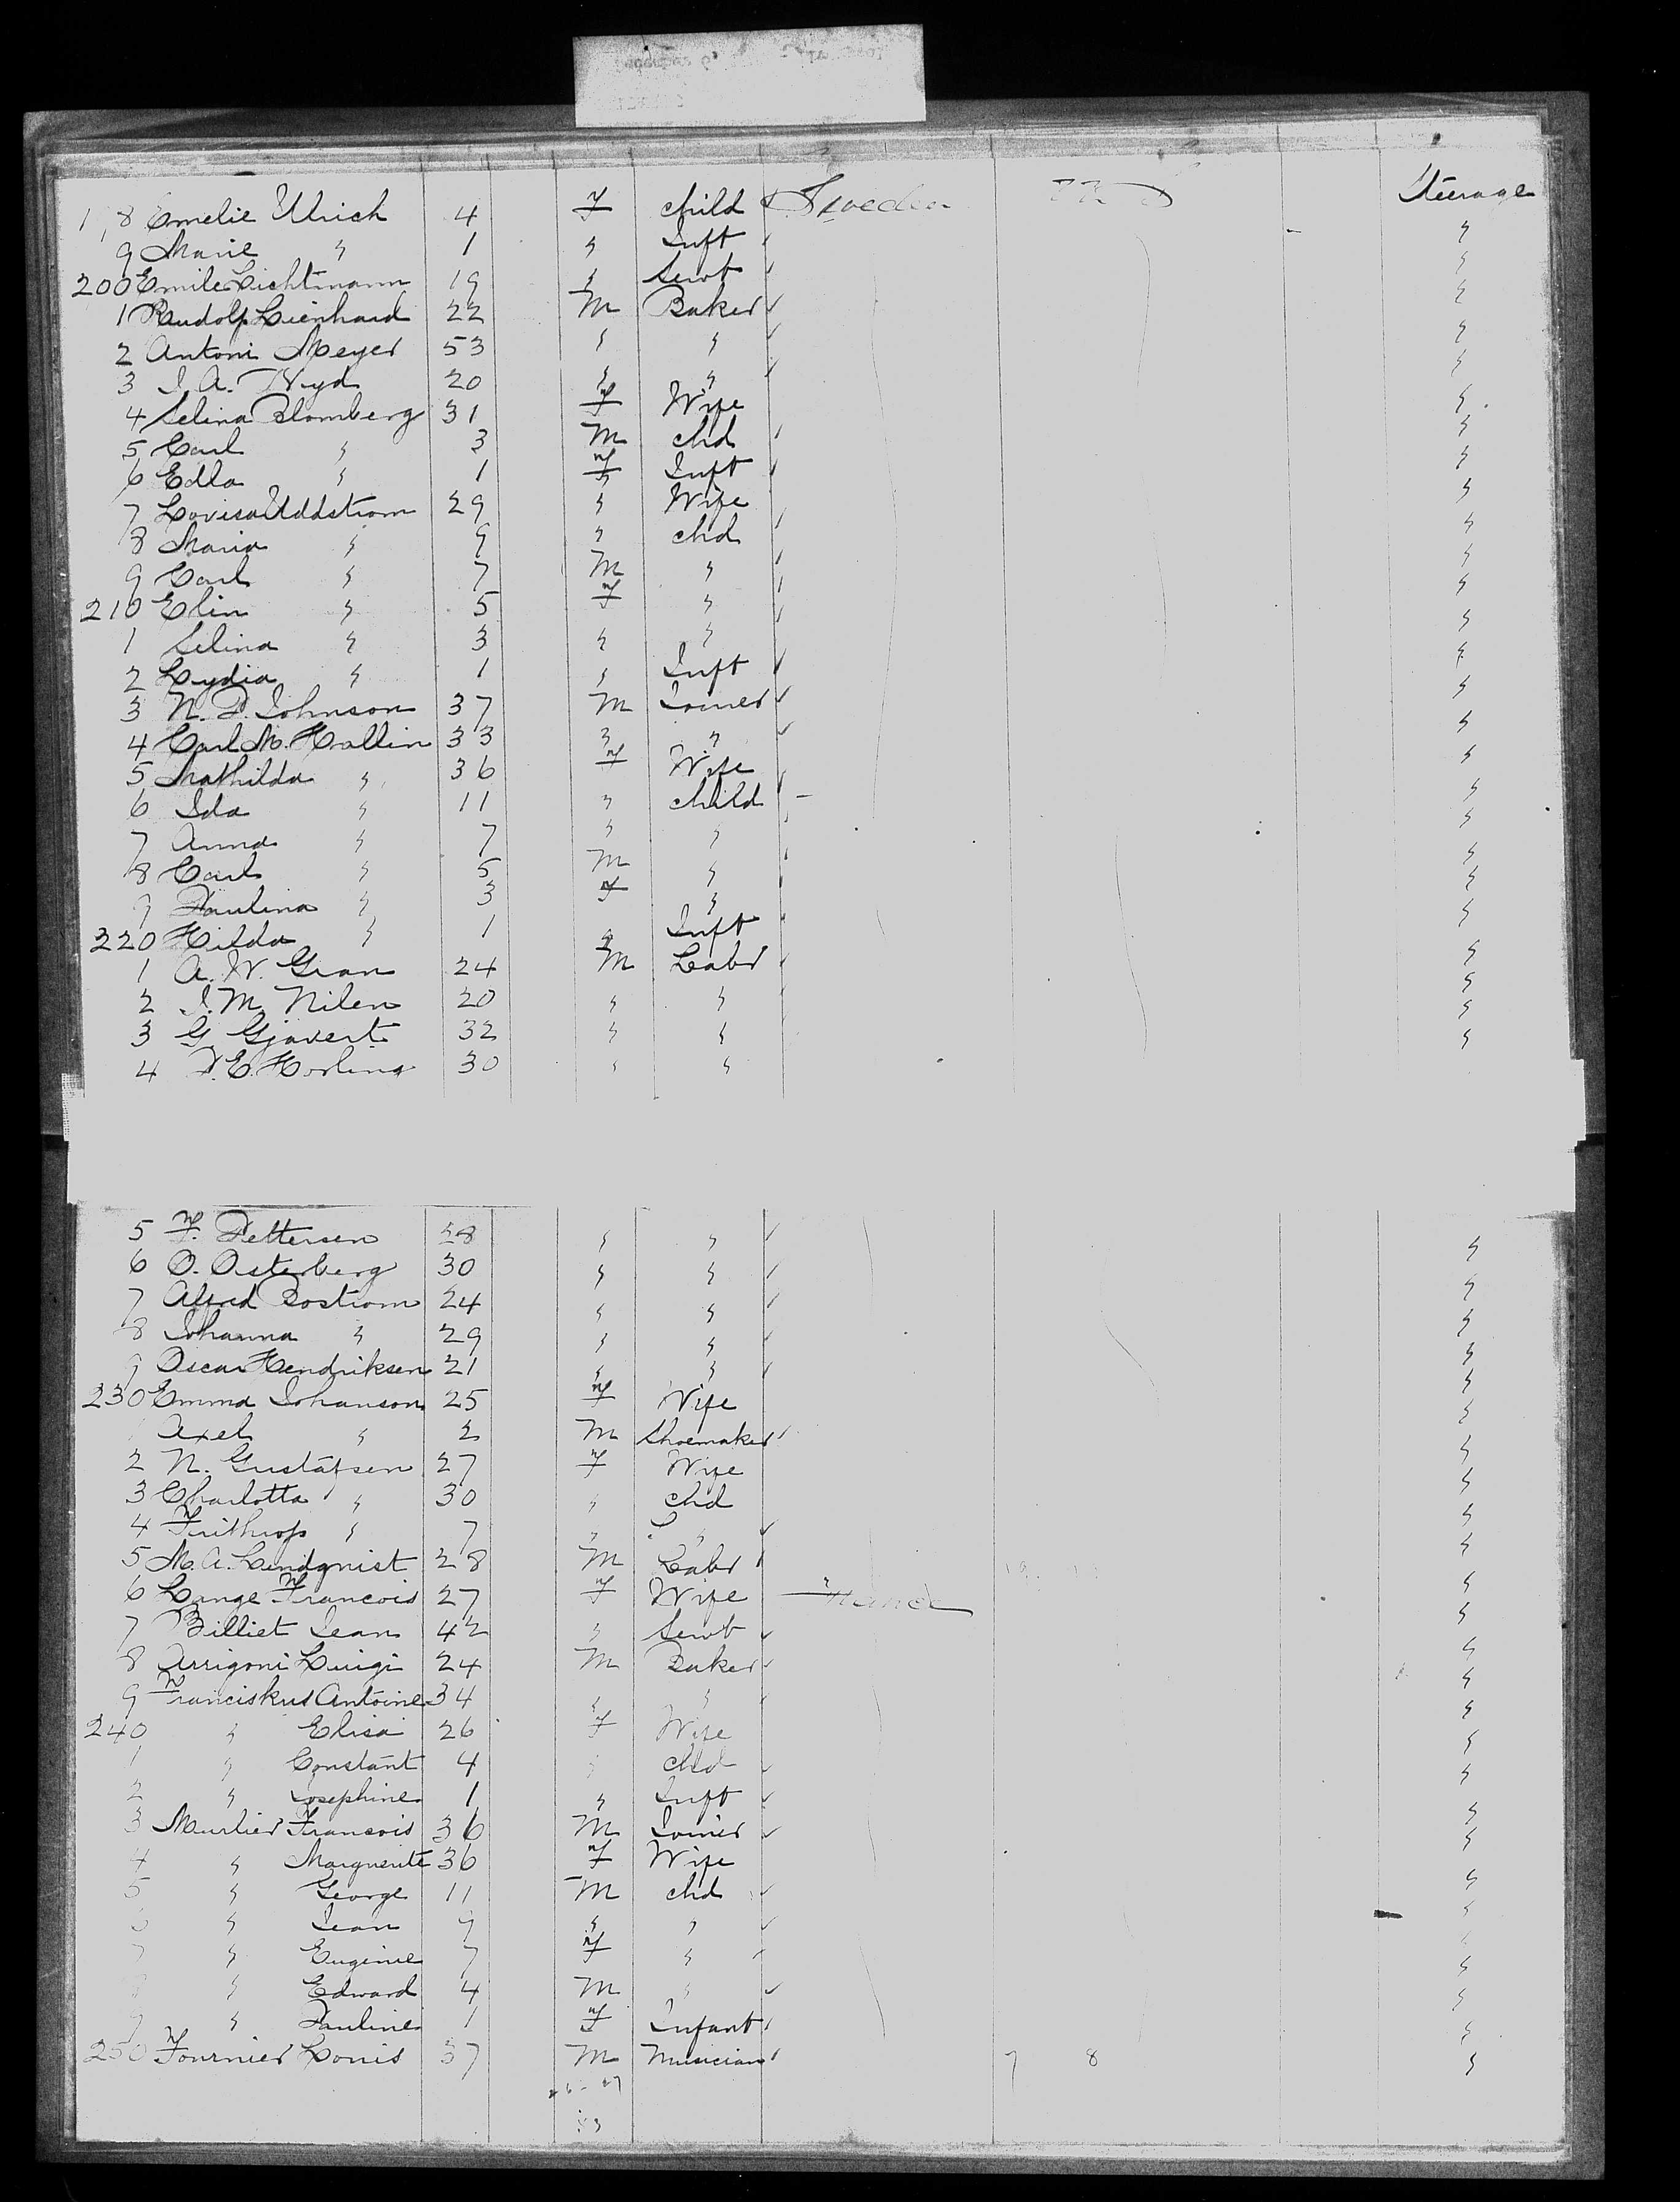 1,8 Emelie Ulrich 4 F child Sweden Steerage
9 Marie " 1 " Inft "
200 Emile Lichtmann 19 " Servt "
1 Rudolf Lienhard 22 M Baker "
2 Antoni Meyer 53 " " "
3 I. A. Nyd 20 " " "
4 Selina Blomberg 31 F Wife "
5 Carl " 3 M chd "
6 Edla " 1 F Inft "
7 Lovisa Uddstrom 29 " Wife "
8 Maria " 9 " chd "
9 Carl " 7 M " "
210 Elin " 5 F " "
1 Selina " 3 " " "
2 Lydia " 1 " Inft "
3 N. P. Johnson 37 M Joiner "
4 Carl M. Hallin 33 " " "
5 Mathilda " 36 F Wife "
6 Ida " 11 " child "
7 Anna " 7 " " "
8 Carl " 5 M " "
9 Paulina " 3 F " "
220 Hilda " 1 " Inft "
1 A. W. Gran 24 M Labr "
2 I. M. Nilen 20 " " "
3 G. Gjavert 32 " " "
4 F. E. Horling 30 " " "
5 F. Pettersen 28 " " "
6 O. Osterberg 30 " " "
7 Alfred Bostrom 24 " " "
8 Johanna " 29 " " "
9 Oscar Hendriksen 21 " " "
230 Emma Johanson 25 F Wife "
1 Axel " 2 M Shoemaker "
2 N. Gustafsen 27 F Wife "
3 Charlotta " 30 " chd "
4 Frithrop " 7 " " "
5 M. A. Lindqvist 28 M Labr "
6 Lange Francois 27 F Wife France "
7 Billiet Jean 42 " Servt "
8 Arrigoni Luigi 24 M Baker "
9 Franciskus Antoine 34 " " "
240 " Elisa 26 F Wife "
1 " Constant 4 " chd "
2 " Josephine 1 " Inft "
3 Murlier Francois 36 M Joiner "
4 " Marguerite 36 F Wife "
5 " George 11 M chd "
6 " Jean 9 " " "
7 " Eugenie 7 F " "
" Edward 4 M " "
9 " Pauline 1 F Infant "
250 Fournier Louis 37 M Musician 7 8 "